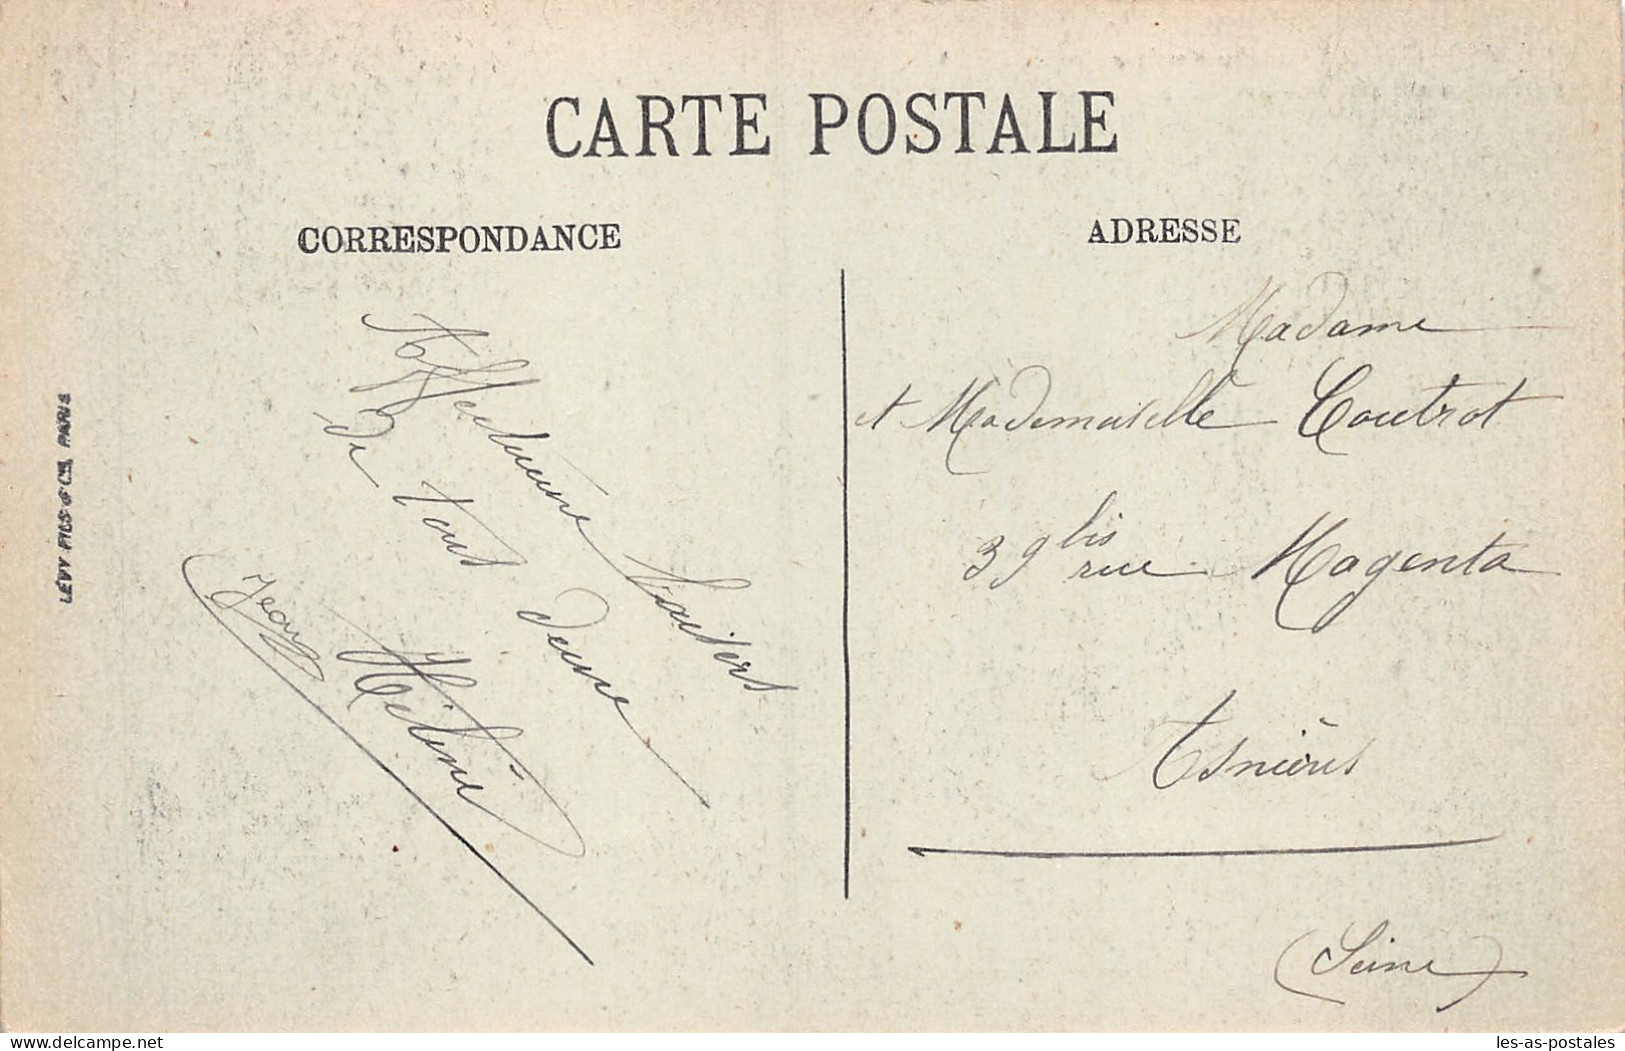 CARTE POSTALE
CORRESPONDANCE
ADRESSE
LÉVY FILS & Cie, PARIS
Affectueux baisers
de tous deux
Hélène
Jean
Madame
et Mademoiselle Coutrot
39 bis rue Magenta
Asnières
(Seine)
les-as-postales